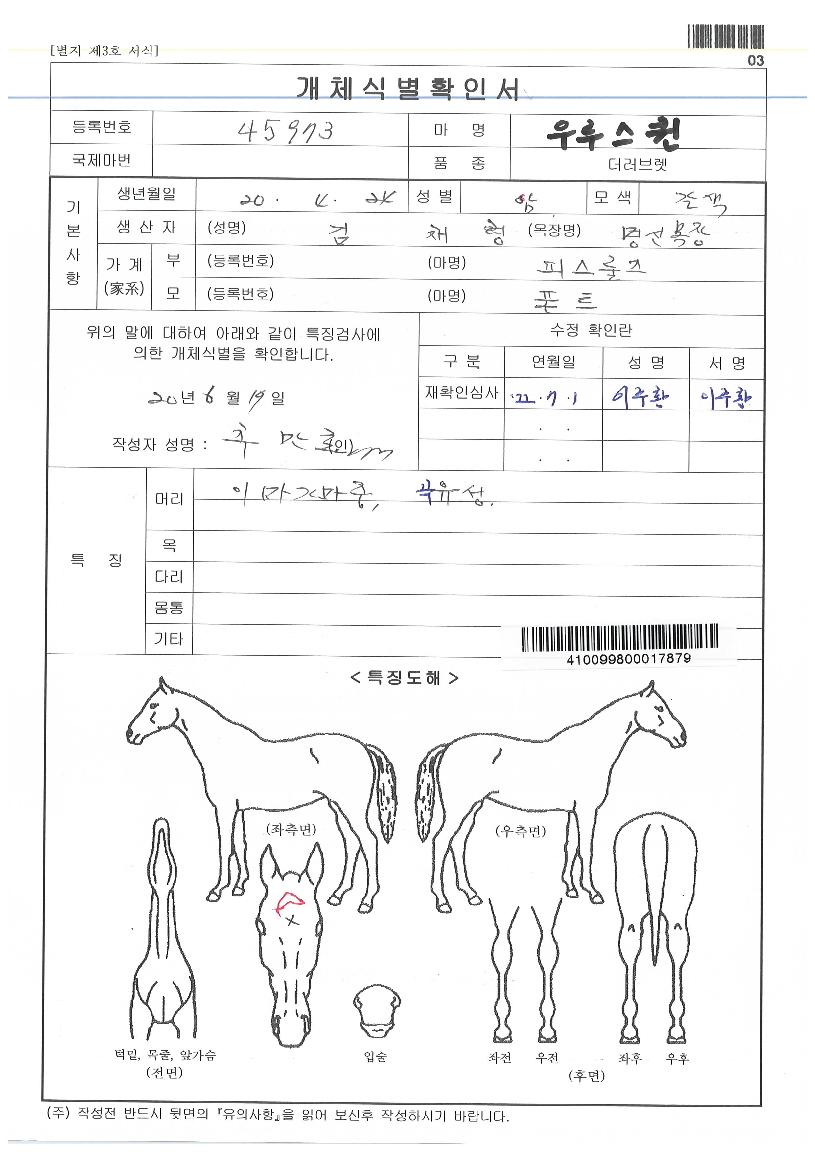 [별지 제3호 서식]
03
개체식별확인서
등록번호 45973 마 명 우루스퀸
국제마번 품 종 더러브렛
기본사항
생년월일 20. 4. 24 성별 암 모색 갈색
생 산 자 (성명) 김 채 형 (목장명) 명선목장
가 계 (家系) 부 (등록번호) (마명) 피스룰즈
모 (등록번호) (마명) 폰트
위의 말에 대하여 아래와 같이 특징검사에
의한 개체식별을 확인합니다.
20년 6월 19일
작성자 성명 : 추 만 (인)
수정 확인란
구 분 연월일 성 명 서 명
재확인심사 '22.7.1 이주환 이주환
. .
. .
특 징
머리 이마가마중, 곡유성.
목
다리
몸통
기타
410099800017879
< 특징도해 >
(좌측면) (우측면)
턱밑, 목줄, 앞가슴 입술 좌전 우전 좌후 우후
(전면) (후면)
(주) 작성전 반드시 뒷면의 『유의사항』을 읽어 보신후 작성하시기 바랍니다.